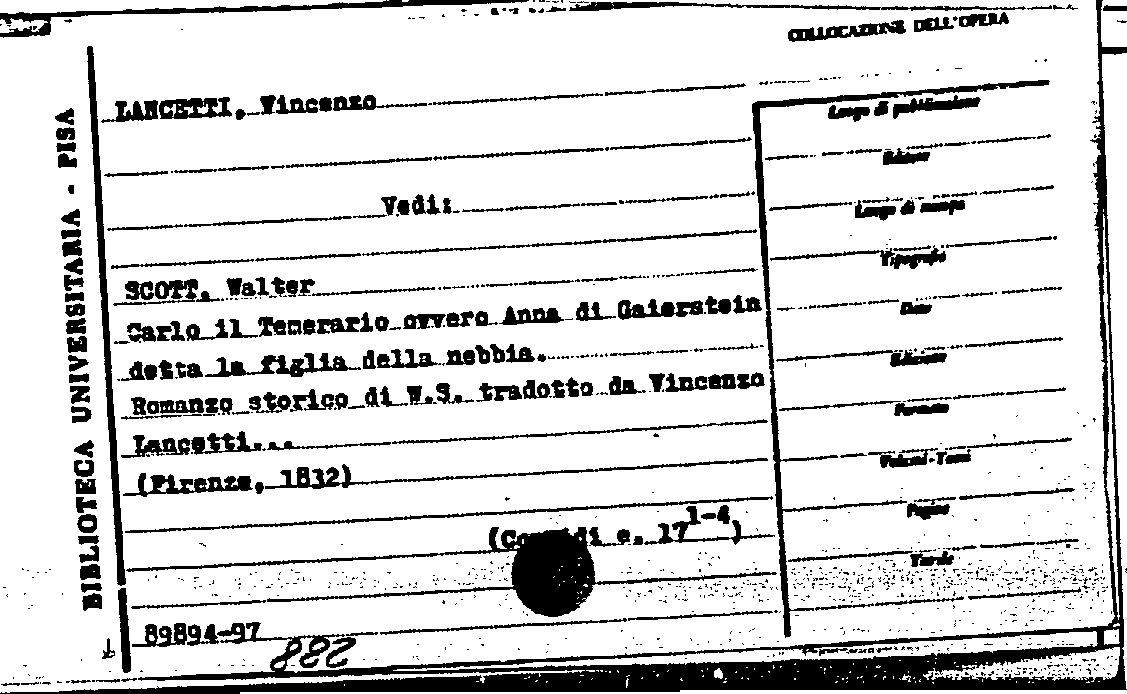 COLLOCAZIONE DELL'OPERA
BIBLIOTECA UNIVERSITARIA - PISA
LANCETTI, Vincenzo
Vedi:
SCOTT, Walter
Carlo il Temerario ovvero Anna di Gaierstein
detta la figlia della nebbia.
Romanzo storico di W.S. tradotto da Vincenzo
Lancetti...
(Firenze, 1832)
e. 17 1-4)
89894-97
288
Luogo di pubblicazione
Editore
Luogo di stampa
Tipografo
Data
Edizione
Formato
Volumi-Tomi
Pagine
Tavole